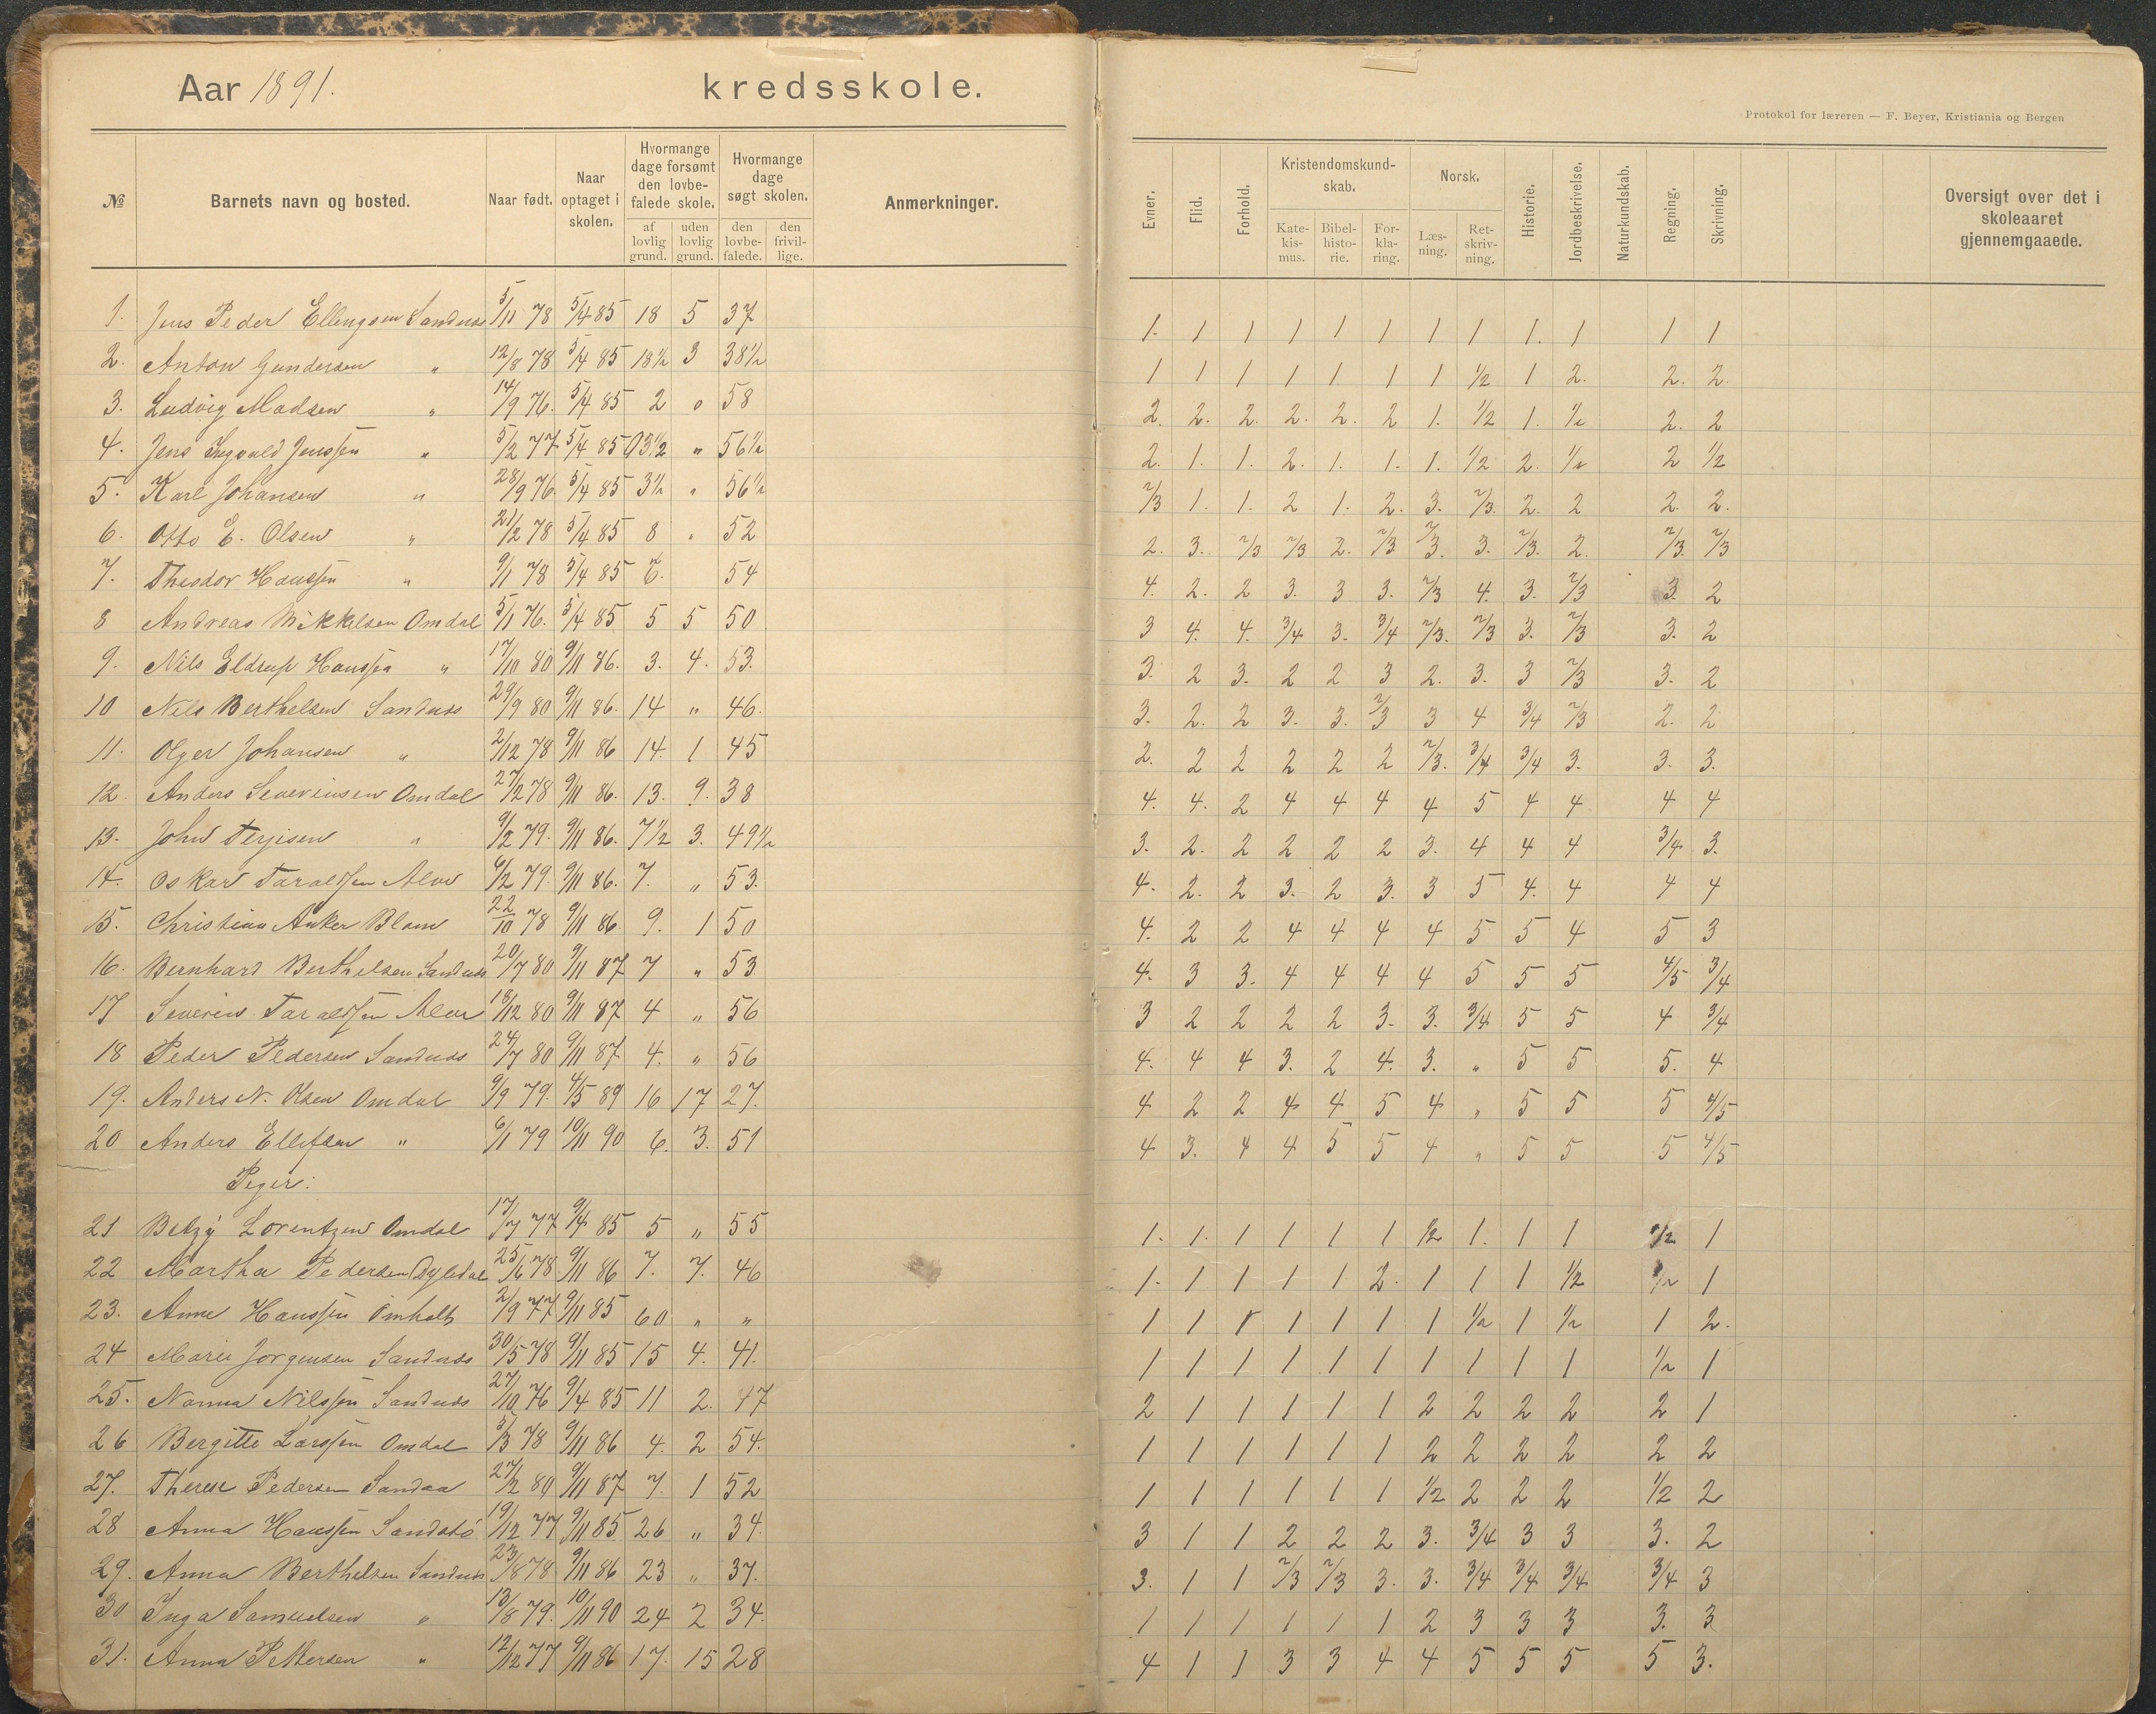 Aar 1891. kredsskole.
Protokol for læreren — F. Beyer, Kristiania og Bergen
№ Barnets navn og bosted. Naar født. Naar optaget i skolen. Hvormange dage forsømt den lovbefalede skole. af lovlig grund. uden lovlig grund. Hvormange dage søgt skolen. den lovbefalede. den frivillige. Anmerkninger.
Evner. Flid. Forhold. Kristendomskundskab. Katekismus. Bibelhistorie. Forklaring. Norsk. Læsning. Retskrivning. Historie. Jordbeskrivelse. Naturkundskab. Regning. Skrivning. Oversigt over det i skoleaaret gjennemgaaede.
1. Jens Peder Ellingsen Sandnes 5/11 78 5/4 85 18 5 37 1. 1 1 1 1 1 1 1 1. 1 1 1
2. Anton Gundersen " 12/8 78 5/4 85 18½ 3 38½ 1 1 1 1 1 1 1 ½ 1 2. 2. 2.
3. Ludvig Madsen " 14/9 76. 5/4 85 2 0 58 2. 2. 2. 2. 2. 2 1. ½ 1. ½ 2. 2
4. Jens Ingvald Jenssen " 5/2 77 5/4 85 3½ " 56½ 2. 1. 1. 2. 1. 1. 1. ½ 2. ½ 2 ½
5. Karl Johansen " 28/9 76. 5/4 85 3½ " 56½ 2/3 1. 1. 2 1. 2. 3. 2/3. 2. 2 2. 2.
6. Otto E. Olsen " 21/2 78 5/4 85 8 " 52 2. 3. 2/3 2/3 2. 2/3 2/3. 3. 2/3. 2. 2/3. 2/3
7. Theodor Hanssen " 9/1 78 5/4 85 6. 54 4. 2. 2 3. 3 3. 2/3 4. 3. 2/3 3. 2
8 Andreas Mikkelsen Omdal 5/1 76. 5/4 85 5 5 50 3 4. 4. 3/4 3. 3/4 2/3. 2/3 3. 2/3 3. 2
9. Nils Eldrup Hanssen " 17/10 80 9/11 86. 3. 4. 53. 3. 2 3. 2 2 3 2. 3. 3 2/3 3. 2
10 Nils Berthelsen Sandnes 29/9 80 9/11 86. 14 " 46. 3. 2. 2 3. 3. 2/3 3 4 3/4 2/3 2. 2
11. Olger Johansen " 2/12 78 9/11 86 14. 1 45 2. 2 2 2 2 2 2/3. 3/4 3/4 3. 3. 3.
12. Anders Severinsen Omdal 27/2 78 9/11 86. 13. 9. 38 4. 4. 2 4 4 4 4 5 4 4 4 4
13. John Terjisen " 9/2 79. 9/11 86. 7½ 3. 49½ 3. 2. 2 2 2 2 3. 4 4 4 3/4 3.
14. Oskar Taraldsen Alve 6/2 79. 9/11 86. 7. " 53. 4. 2. 2 3. 2 3. 3 5 4. 4 4 4
15. Christian Anker Blom 22/10 78 9/11 86. 9. 1 50 4. 2 2 4 4 4 4 5 5 4 5 3
16. Bernhard Berthelsen Sandnes 20/7 80 9/11 87 7 " 53 4. 3 3. 4 4 4 4 5 5 5 4/5 3/4
17 Severin Taraldsen Alve 18/12 80 9/11 87 4 " 56 3 2 2 2 2 3. 3. 3/4 5 5 4 3/4
18 Peder Pedersen Sandnes 24/7 80 9/11 87 4. " 56 4. 4 4 3. 2 4. 3. " 5 5 5. 4
19. Anders N. Olsen Omdal 9/9 79. 4/5 89 16 17 27. 4 2 2 4 4 5 4 " 5 5 5 4/5
20 Anders Ellefsen " 6/1 79 10/11 90 6. 3. 51 4 3. 4 4 5 5 4 " 5 5 5 4/5
Piger:
21 Betzy Lorentzen Omdal 17/7 77 9/4 85 5 " 55 1. 1. 1 1 1 1 ½ 1. 1 1 ½ 1
22 Martha Pedersen 25/6 78 9/11 86 7. 7. 46 1. 1 1 1 1 2. 1 1 1 ½ ½ 1
23. Anne Hanssen Omholt 2/9 77 9/11 85 60 " " 1 1 1 1 1 1 1 ½ 1 ½ 1 2.
24 Marie Jørgensen Sandnes 30/5 78 9/11 85 15 4. 41. 1 1 1 1 1 1 1 1 1 1 ½ 1
25. Nanna Nilssen Sandnes 27/10 76 9/4 85 11 2. 47 2 1 1 1 1 1 2 2 2 2 2 1
26 Bergitte Larssen Omdal 5/3 78 9/11 86 4. 2 54. 1 1 1 1 1 1 2 2 2 2 2 2
27. Therese Pedersen Sandaa 27/2 80 9/11 87 7. 1 52 1 1 1 1 1 1 ½ 2 2 2 ½ 2
28 Anna Hanssen Sandstø 19/12 77 9/11 85 26 " 34. 3 1 1 2 2 2 3. 3/4 3 3 3. 2
29. Anna Berthelsen Sandnes 23/8 78 9/11 86 23 " 37. 3. 1 1 2/3 2/3 3. 3. 3/4 3/4 3/4 3/4 3
30 Inga Samuelsen " 13/8 79. 10/11 90 24 2 34. 1 1 1 1 1 1 2 3 3 3 3. 3
31. Anna Pettersen " 12/12 77 9/11 86 17. 15 28 4 1 1 3 3 4 4 5 5 5 5 3.